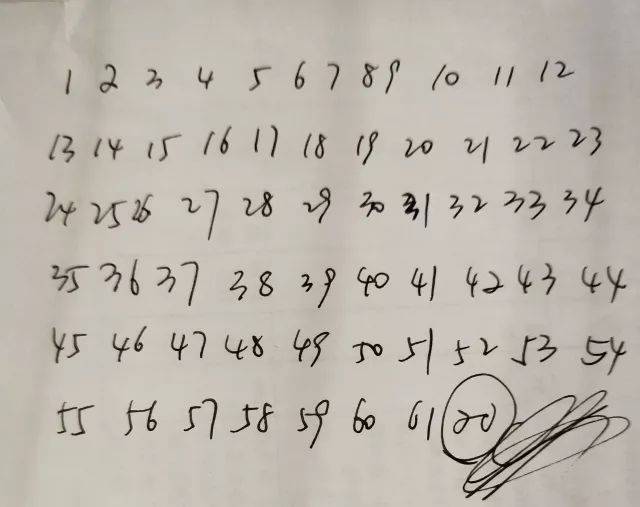 1 2 3 4 5 6 7 8 9 10 11 12
13 14 15 16 17 18 19 20 21 22 23
24 25 26 27 28 29 30 31 32 33 34
35 36 37 38 39 40 41 42 43 44
45 46 47 48 49 50 51 52 53 54
55 56 57 58 59 60 61 20